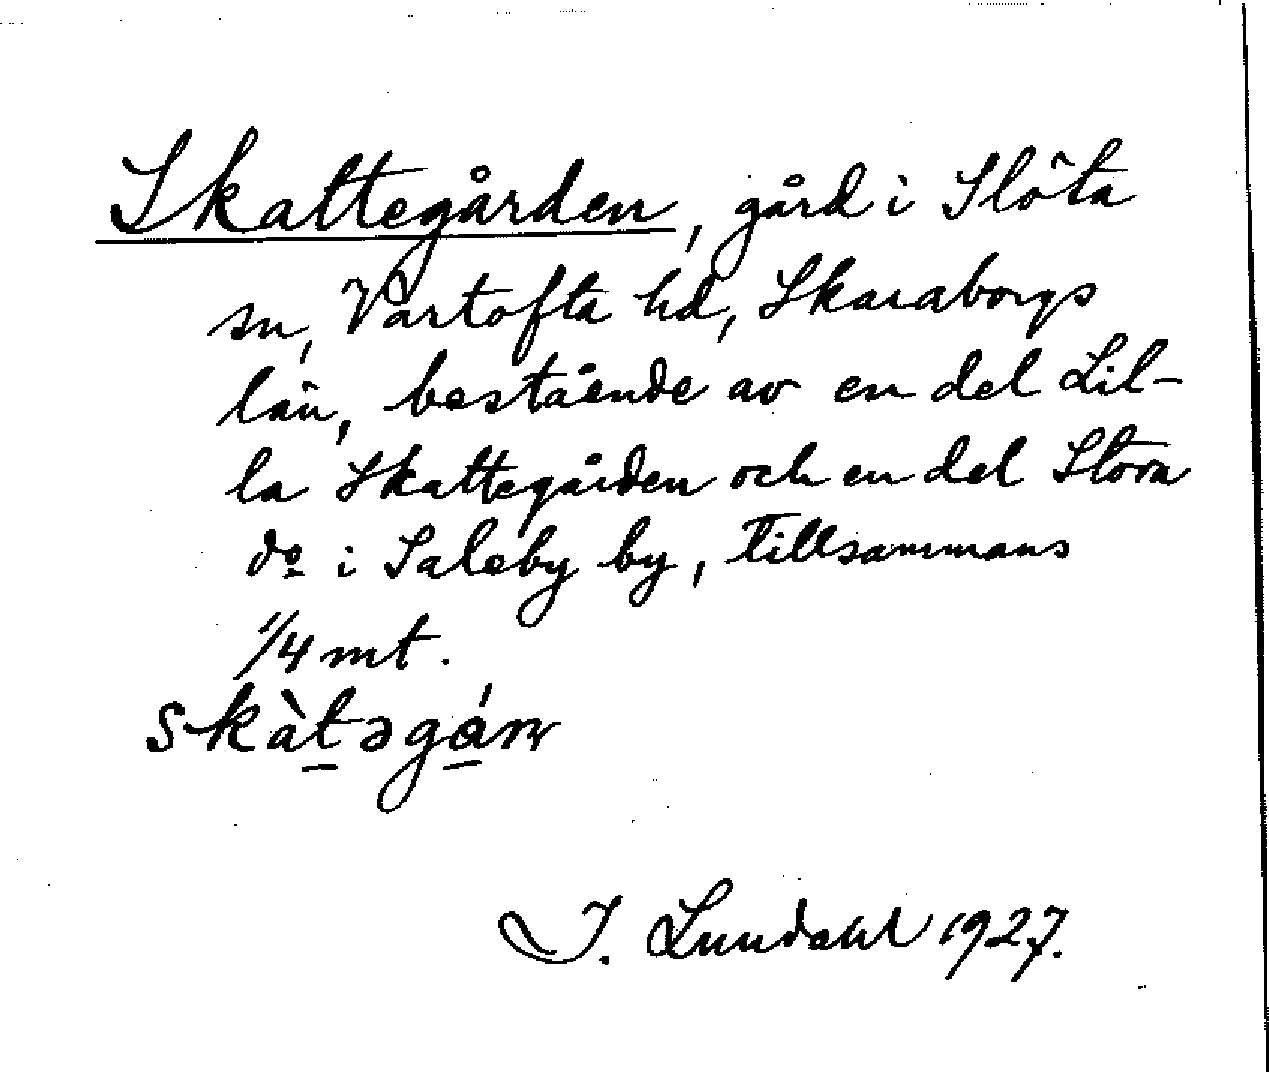 Skattegården, gård i Slöta
sn, Vartofta hd, Skaraborgs
län, bestående av en del Lil-
la Skattegården och en del Stora
dº i Saleby by, tillsammans
1/4 mt.
I. Lundahl 1927.